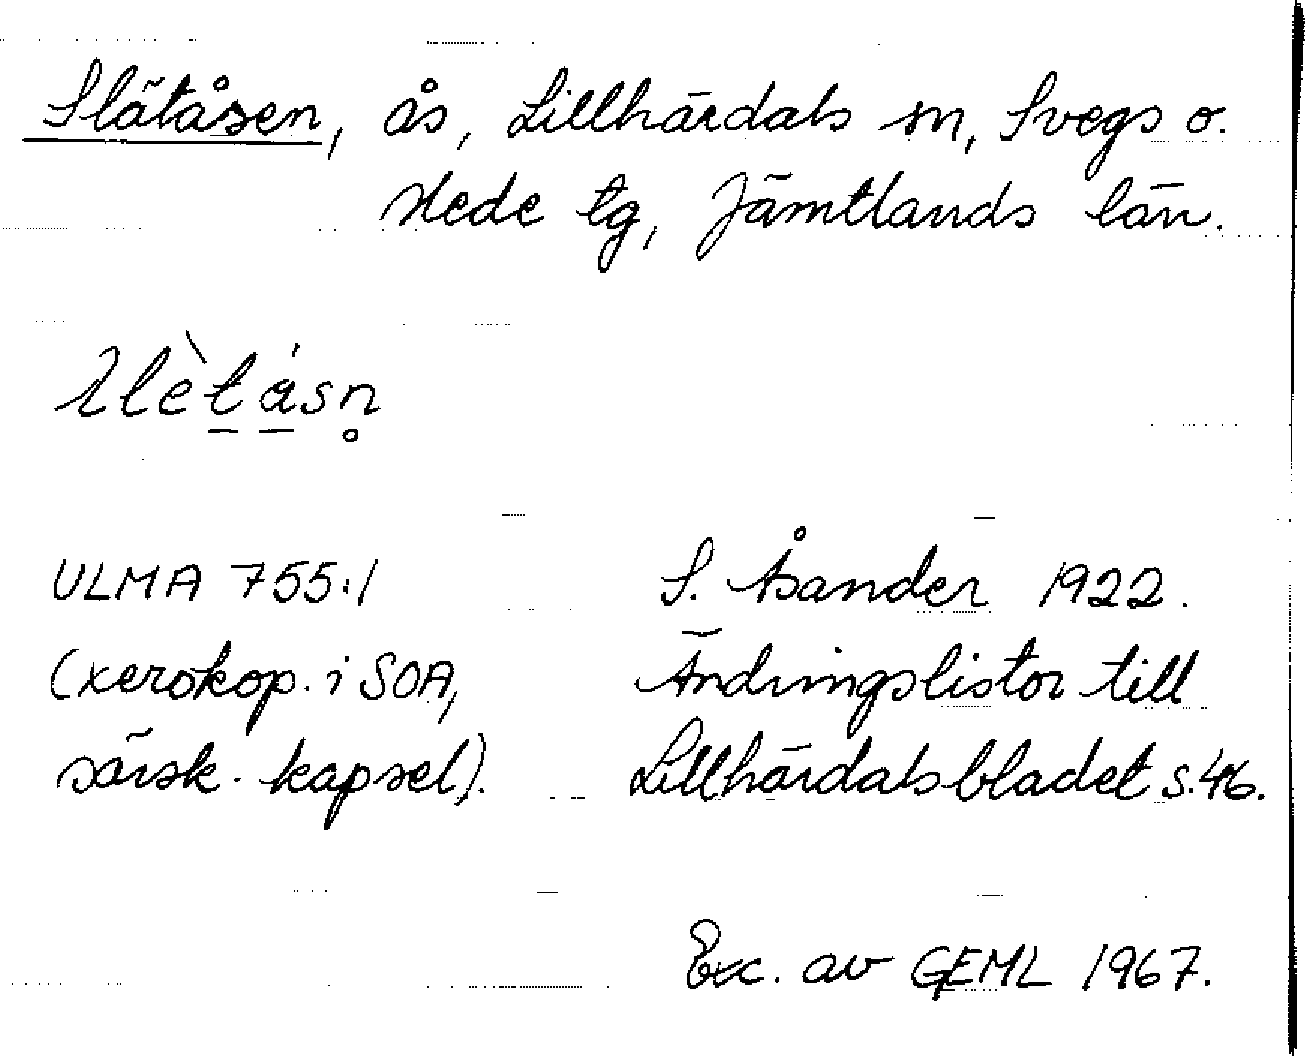 Slätåsen, ås, Lillhärdals sn, Svegs o.
Hede tg, Jämtlands län.
ULMA 755:1
S. Åsander 1922.
(xerokop. i SOA,
Ändringslistor till
särsk. kapsel).
Lillhärdalsbladet s. 46.
Exc. av GEML 1967.